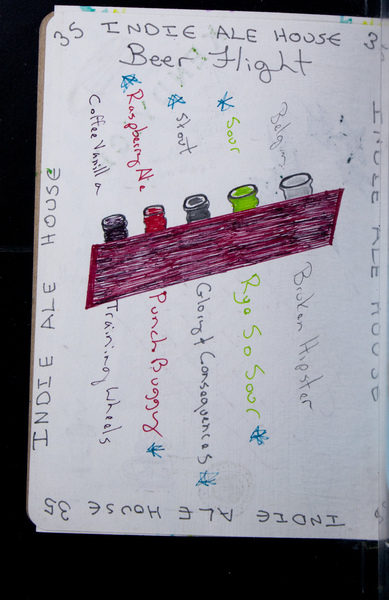 35 INDIE ALE HOUSE 35
Beer Flight
Coffee Vanilla
Raspberry Ale
Stout
Sour
Training Wheels
Punch Buggy
Glory & Consequences
Ryo So Sour
Broken Hipster
INDIE ALE HOUSE
INDIE ALE HOUSE 35
INDIE ALE HOUSE